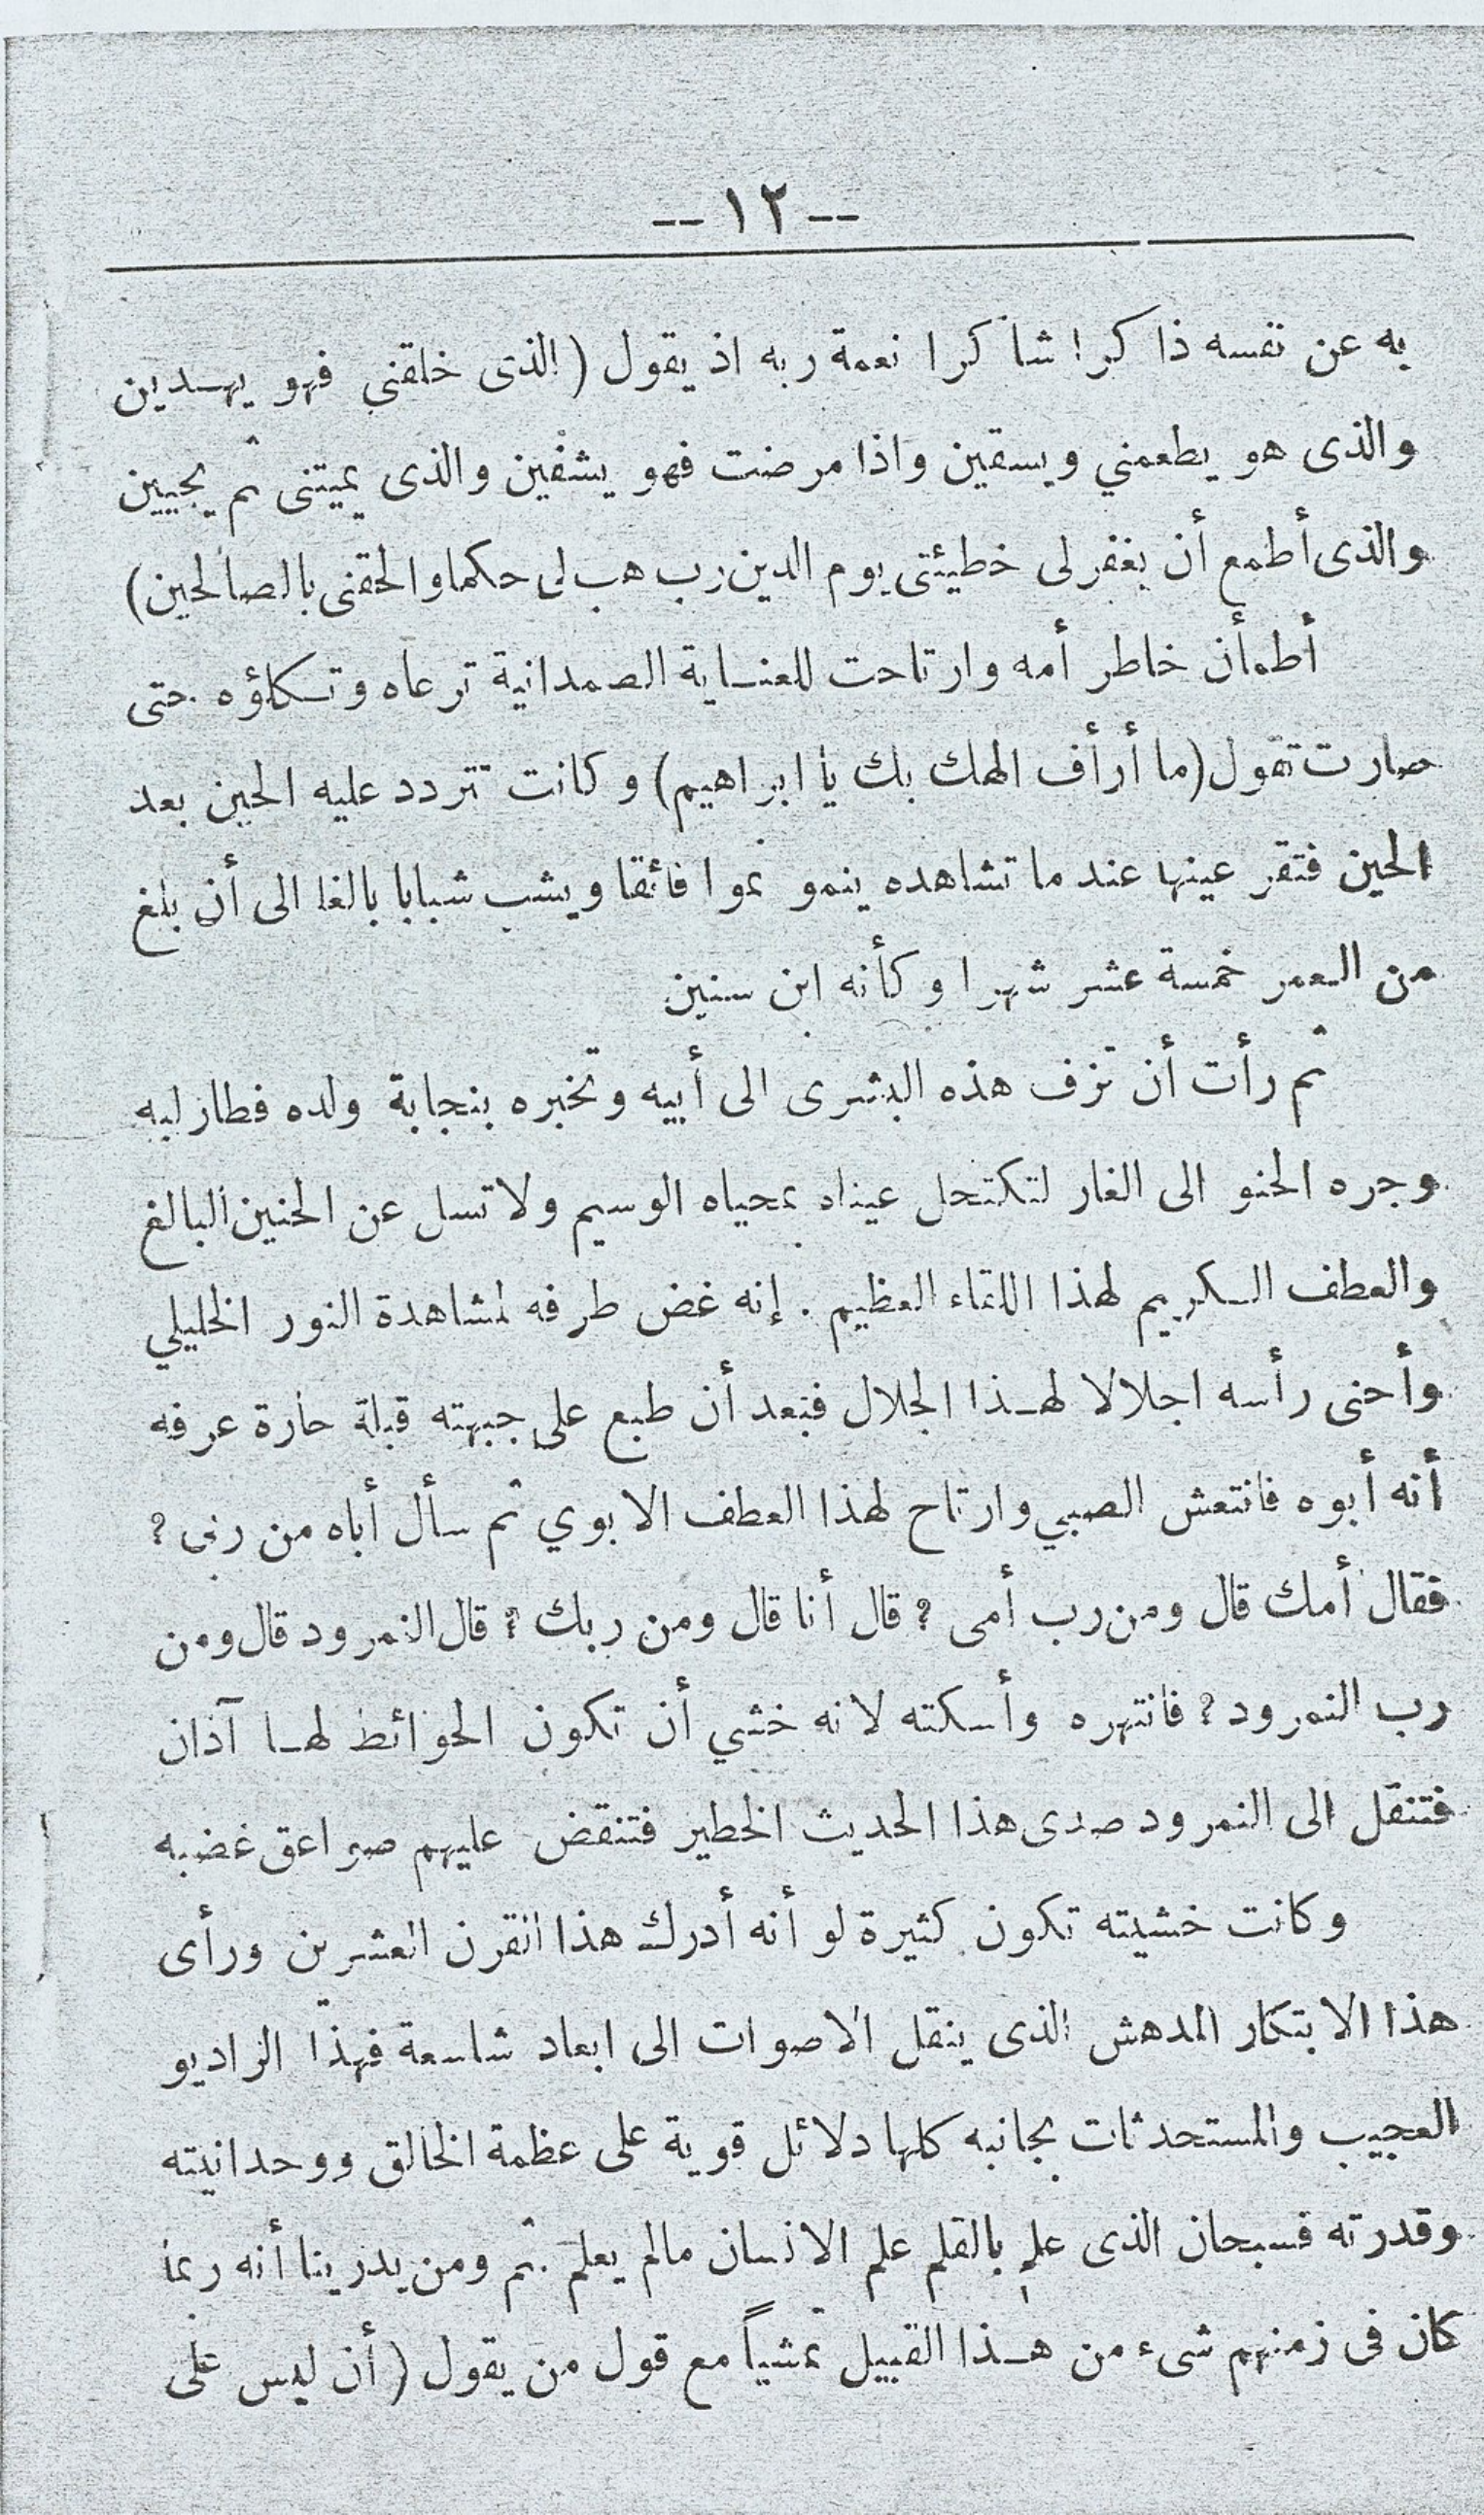 -- ١٢ --
به عن نفسه ذاكرا شاكرا نعمة ربه اذ يقول ( الذى خلقني فهو يهدين
والذى هو يطعمني ويسقين واذا مرضت فهو يشفين والذى يميتنى ثم يحيين
والذى أطمع أن يغفر لى خطيئتى يوم الدين رب هب لى حكما والحقنى بالصالحين)
أطمأن خاطر أمه وارتاحت للعناية الصمدانية ترعاه وتكلؤه حتى
صارت تقول (ما أرأف الهك بك يا ابراهيم) وكانت تتردد عليه الحين بعد
الحين فتقر عينها عند ما تشاهده ينمو نموا فائقا ويشب شبابا بالغا الى أن بلغ
من العمر خمسة عشر شهرا وكأنه ابن سنين
ثم رأت أن تزف هذه البشرى الى أبيه وتخبره بنجابة ولده فطار لبه
وجره الحنو الى الغار لتكتحل عيناه بمحياه الوسيم ولا تسل عن الحنين البالغ
والعطف الكريم لهذا اللقاء العظيم . إنه غض طرفه لمشاهدة النور الخليلي
وأحنى رأسه اجلالا لهذا الجلال فبعد أن طبع على جبهته قبلة حارة عرفه
أنه أبوه فانتعش الصبي وارتاح لهذا العطف الابوي ثم سأل أباه من ربى ؟
فقال أمك قال ومن رب أمى ؟ قال أنا قال ومن ربك ؟ قال النمرود قال ومن
رب النمرود ؟ فانتهره وأسكته لانه خشي أن تكون الحوائط لها آذان
فتنقل الى النمرود صدى هذا الحديث الخطير فتنقض عليهم صواعق غضبه
وكانت خشيته تكون كثيرة لو أنه أدرك هذا القرن العشرين ورأى
هذا الابتكار المدهش الذى ينقل الاصوات الى ابعاد شاسعة فهذا الراديو
العجيب والمستحدثات بجانبه كلها دلائل قوية على عظمة الخالق ووحدانيته
وقدرته فسبحان الذى علم بالقلم علم الانسان مالم يعلم . ثم ومن يدرينا أنه ربما
كان فى زمنهم شىء من هذا القبيل تمشياً مع قول من يقول ( أن ليس على